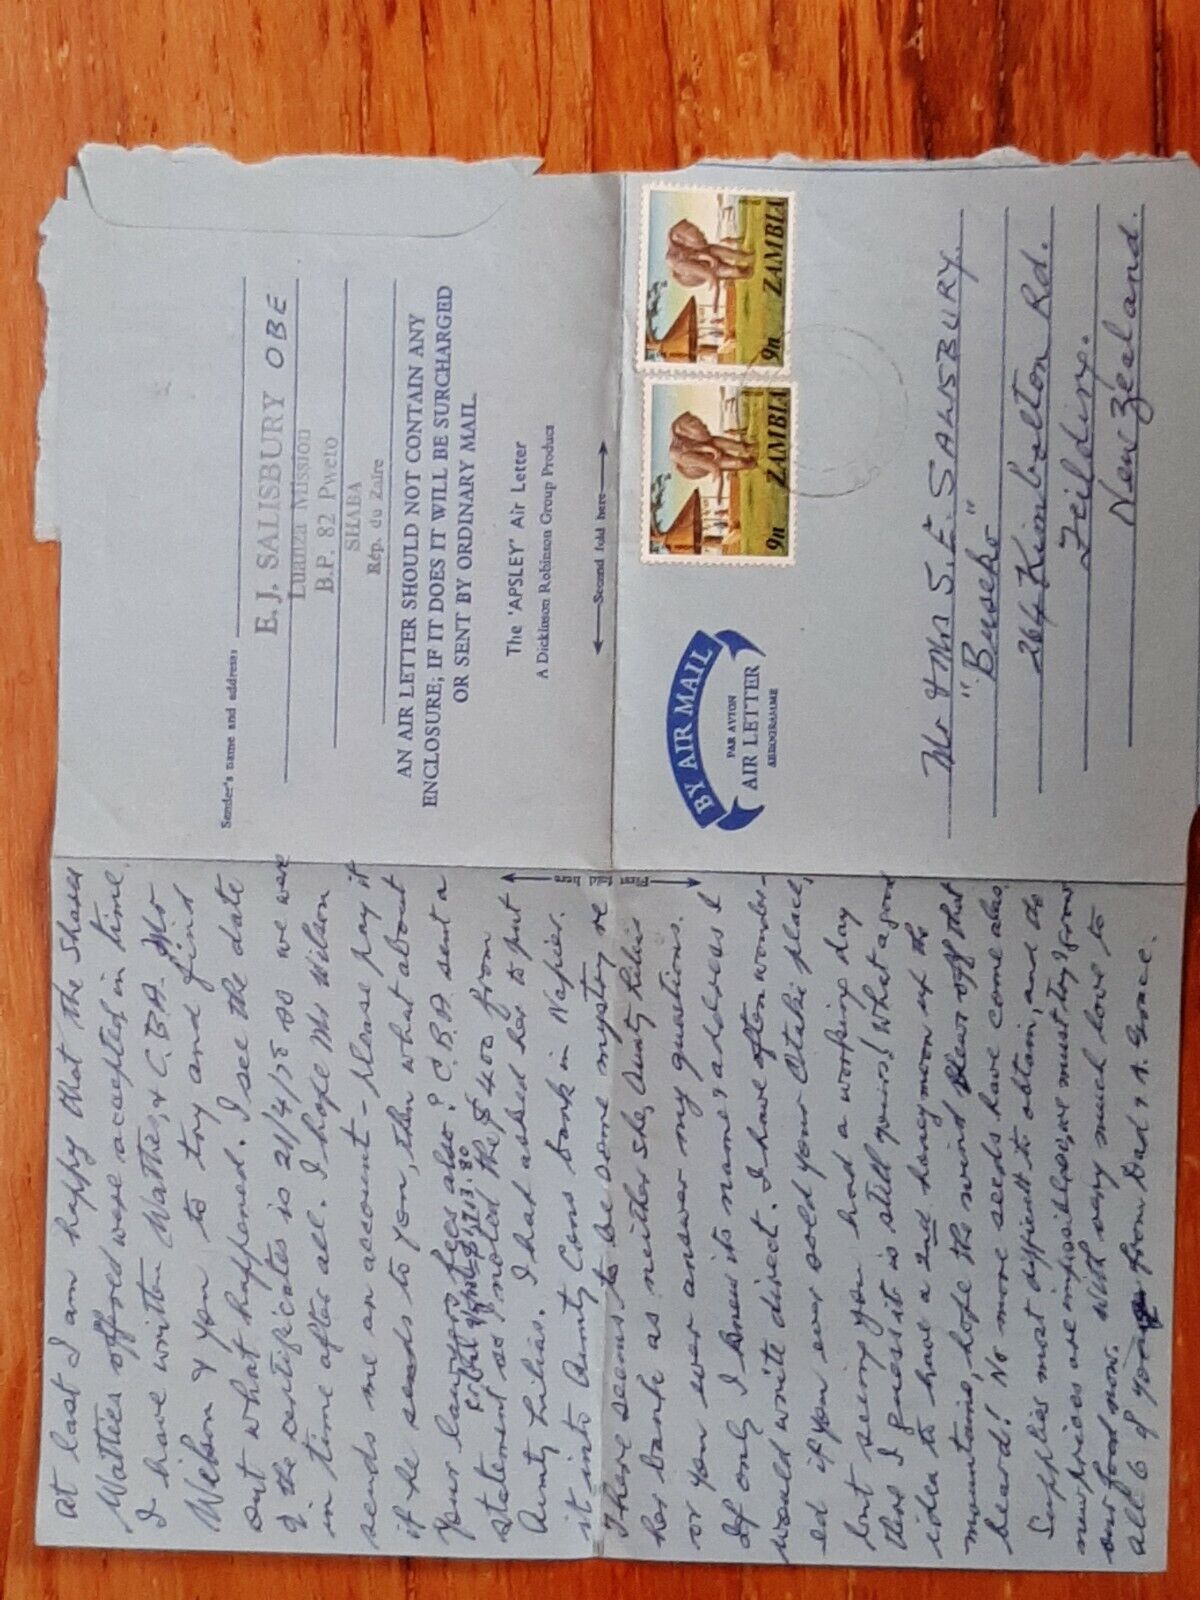 Sender's name and address:
E. J. SALISBURY OBE
Luanza Mission
B.P. 82 Pweto
SHABA
Rép. du Zaïre
AN AIR LETTER SHOULD NOT CONTAIN ANY
ENCLOSURE; IF IT DOES IT WILL BE SURCHARGED
OR SENT BY ORDINARY MAIL.
The 'APSLEY' Air Letter
A Dickinson Robinson Group Product
Second fold here
9n ZAMBIA
9n ZAMBIA
BY AIR MAIL
PAR AVION
AIR LETTER
AEROGRAMME
Mr & Mrs S. E. SALISBURY.
"Buseko"
264 Kimbolton Rd.
Feilding.
New Zealand.
First fold here
At last I am happy that the Shares
Watties offered were accepted in time.
I have written Watties, & C.B.A. Mr
Webson & you to try and find
out what happened. I see the date
of the certificates is 21/4/75 so we were
in time after all. I hope Mr Wilson
sends me an account - please pay it
if he sends to you, then what about
your lawyers fees also? C.B.A. sent a
for bal $1213.80
statement so noted the $400 from
Aunty Lilias. I had asked her to put
it into Aunty Cons bank in Napier.
There seems to be some mystery re
her bank as neither she, Aunty Lilias
or you ever answer my questions.
If only I knew its name & address I
would write direct. I have often wonder-
ed if you ever sold your Otaki place,
but seeing you had a working day
there I guess it is still yours! What a good
idea to have a 2nd honeymoon up the
mountains, hope the wind blows off that
beard! No more seeds have come alas.
Supplies most difficult to obtain, and the
new prices are impossible, we must try & grow
our food now. With very much love to
all 6 of you from Dad & A. Grace.